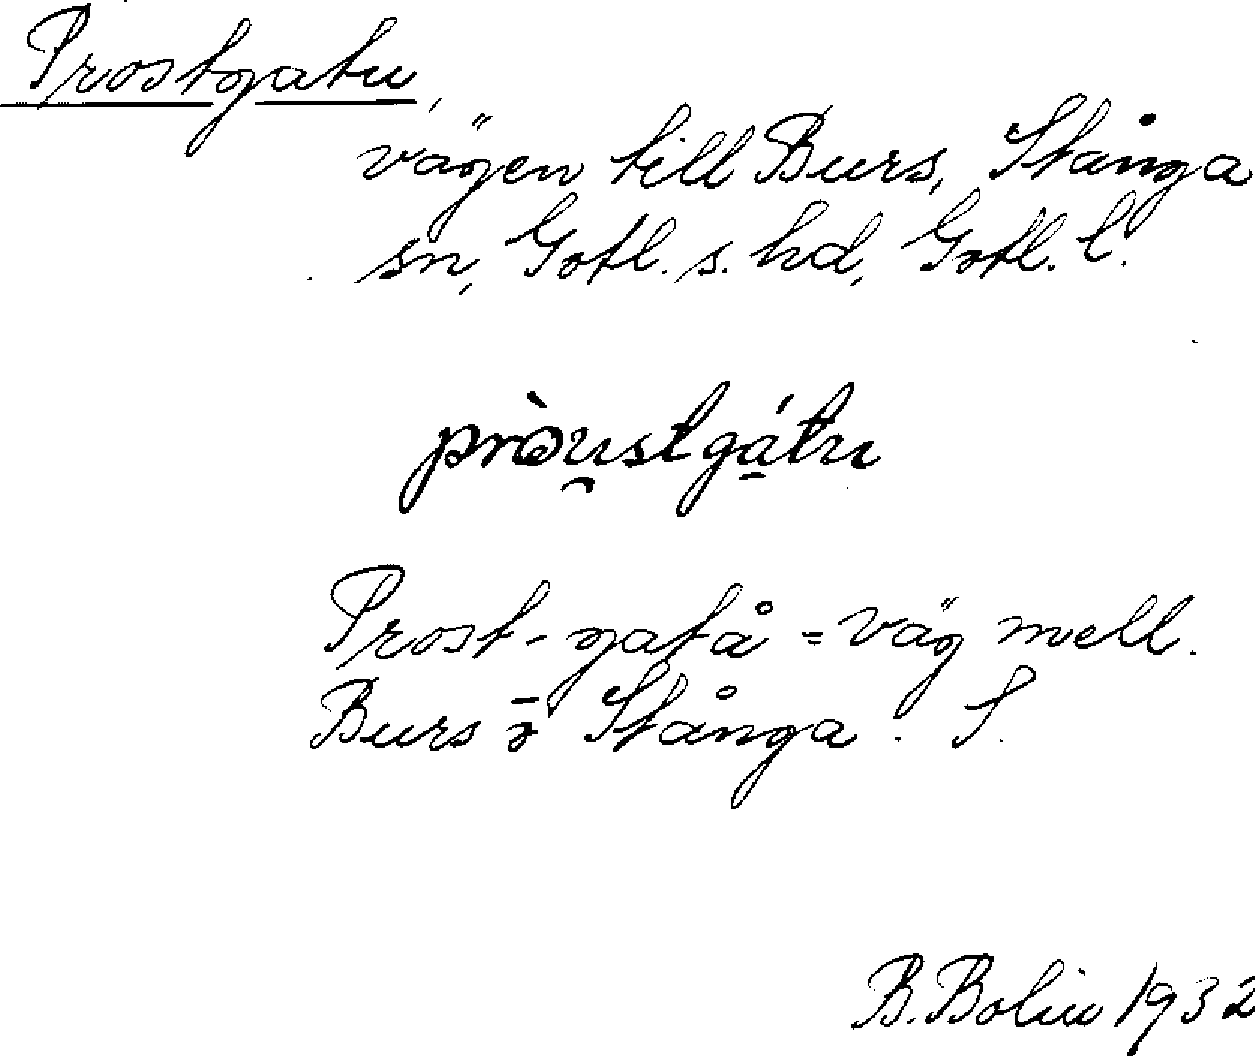 Prostgatu,
vägen till Burs, Stånga
sn, Gotl. s. hd, Gotl. l.
pròu̯stgá̠tu
Prost-gatå = väg mell.
Burs o Stånga. S.
B. Bolin 1932